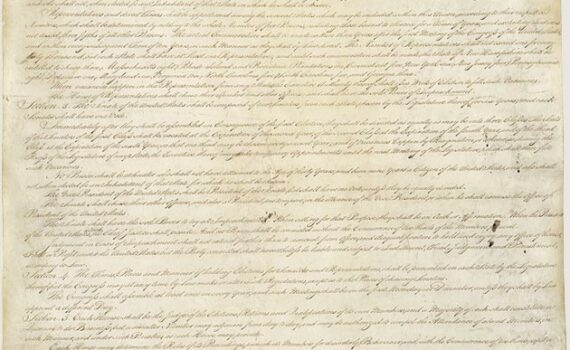 and who shall not, when elected, be an Inhabitant of that State in which he shall be chosen.
Representatives and direct Taxes shall be apportioned among the several States which may be included within this Union, according to their respective
Numbers, which shall be determined by adding to the whole Number of free Persons, including those bound to Service for a Term of Years, and excluding Indians
not taxed, three fifths of all other Persons. The actual Enumeration shall be made within three Years after the first Meeting of the Congress of the United States,
and within every subsequent Term of ten Years, in such Manner as they shall by Law direct. The Number of Representatives shall not exceed one for every
thirty Thousand, but each State shall have at Least one Representative; and until such enumeration shall be made, the State of New Hampshire shall be
When vacancies happen in the Representation from any State, the Executive Authority thereof shall issue Writs of Election to fill such Vacancies.
The House of Representatives shall
Power of Impeachment.
Section. 3. The Senate of the United States shall be composed of two Senators from each State, chosen by the Legislature thereof, for six Years; and each
Senator shall have one Vote.
Immediately after they shall be assembled in Consequence of the first Election, they shall be divided as equally as may be into three Classes. The Seats
of the Senators of the first Class shall be vacated at the Expiration of the second Year, of the second Class at the Expiration of the fourth Year, and of the third
Class at the Expiration of the sixth Year, so that one third may be chosen every second Year; and if Vacancies happen by Resignation, or otherwise, during the
such Vacancies.
No Person shall be a Senator who shall not have attained to the Age of thirty Years, and been nine Years a Citizen of the United States, and who shall
not, when elected, be an Inhabitant of that State for which he shall be chosen.
The Vice President of the United States shall be President of the Senate, but shall have no Vote, unless they be equally divided.
The Senate shall chuse their other Officers, and also a President pro tempore, in the Absence of the Vice President, or when he shall exercise the Office of
President of the United States.
The Senate shall have the sole Power to try all Impeachments. When sitting for that Purpose, they shall be on Oath or Affirmation. When the President
of the United States is tried, the Chief Justice shall preside: And no Person shall be convicted without the Concurrence of two thirds of the Members present.
Judgment in Cases of Impeachment shall not extend further than to removal from Office, and disqualification to hold and enjoy any Office of honor,
Trust or Profit under the United States: but the Party convicted shall nevertheless be liable and subject to Indictment, Trial, Judgment and Punishment,
according to Law.
Section. 4. The Times, Places and Manner of holding Elections for Senators and Representatives, shall be prescribed in each State by the Legislature
thereof; but the Congress may at any time by Law make or alter such Regulations, except as to the Places of chusing Senators.
The Congress shall assemble at least once in every Year, and such Meeting shall be on the first Monday in December, unless they shall by Law
appoint a different Day.
Section. 5. Each House shall be the Judge of the Elections, Returns and Qualifications of its own Members, and a Majority of each shall constitute a
Quorum to do Business; but a smaller Number may adjourn from day to day, and may be authorized to compel the Attendance of absent Members, in
such Manner, and under such Penalties as each House may provide.
Each House may determine the Rules of its Proceedings, punish its Members for disorderly Behaviour, and, with the Concurrence of two thirds, expel